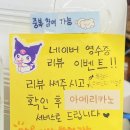 중복 참여 가능
네이버 영수증
리뷰 이벤트!!
리뷰 써주시고
확인 후 아메리카노
서비스로 드립니다